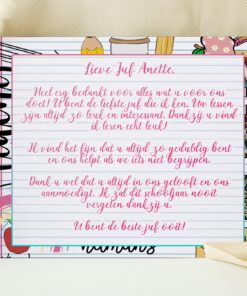 Lieve Juf Anette,
Heel erg bedankt voor alles wat u voor ons
doet! U bent de liefste juf die ik ken. Uw lessen
zijn altijd zo leuk en interessant. Dankzij u vind
ik leren echt leuk!
Ik vind het fijn dat u altijd zo geduldig bent
en ons helpt als we iets niet begrijpen.
Dank u wel dat u altijd in ons gelooft en ons
aanmoedigt. Ik zal dit schooljaar nooit
vergeten dankzij u.
U bent de beste juf ooit!